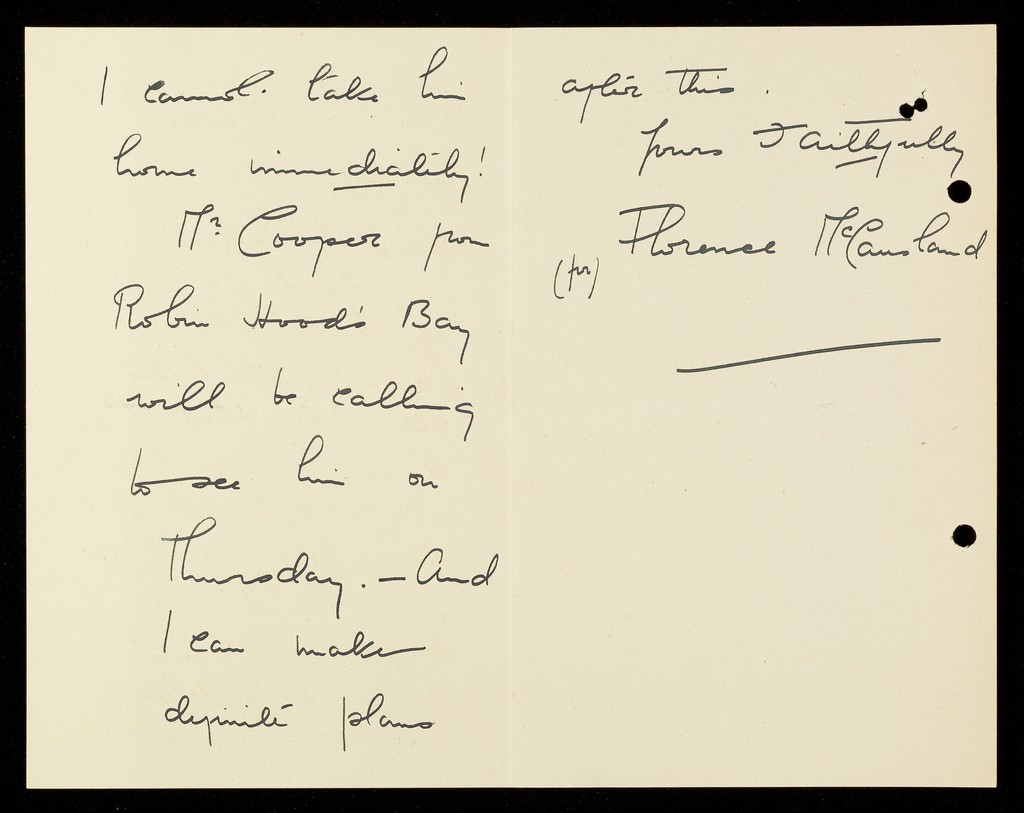 I cannot take him
home immediately!
Mr Cooper from
Robin Hood's Bay
will be calling
to see him on
Thursday. — And
I can make
definite plans
after this.
Yours Faithfully
(for) Florence McCausland